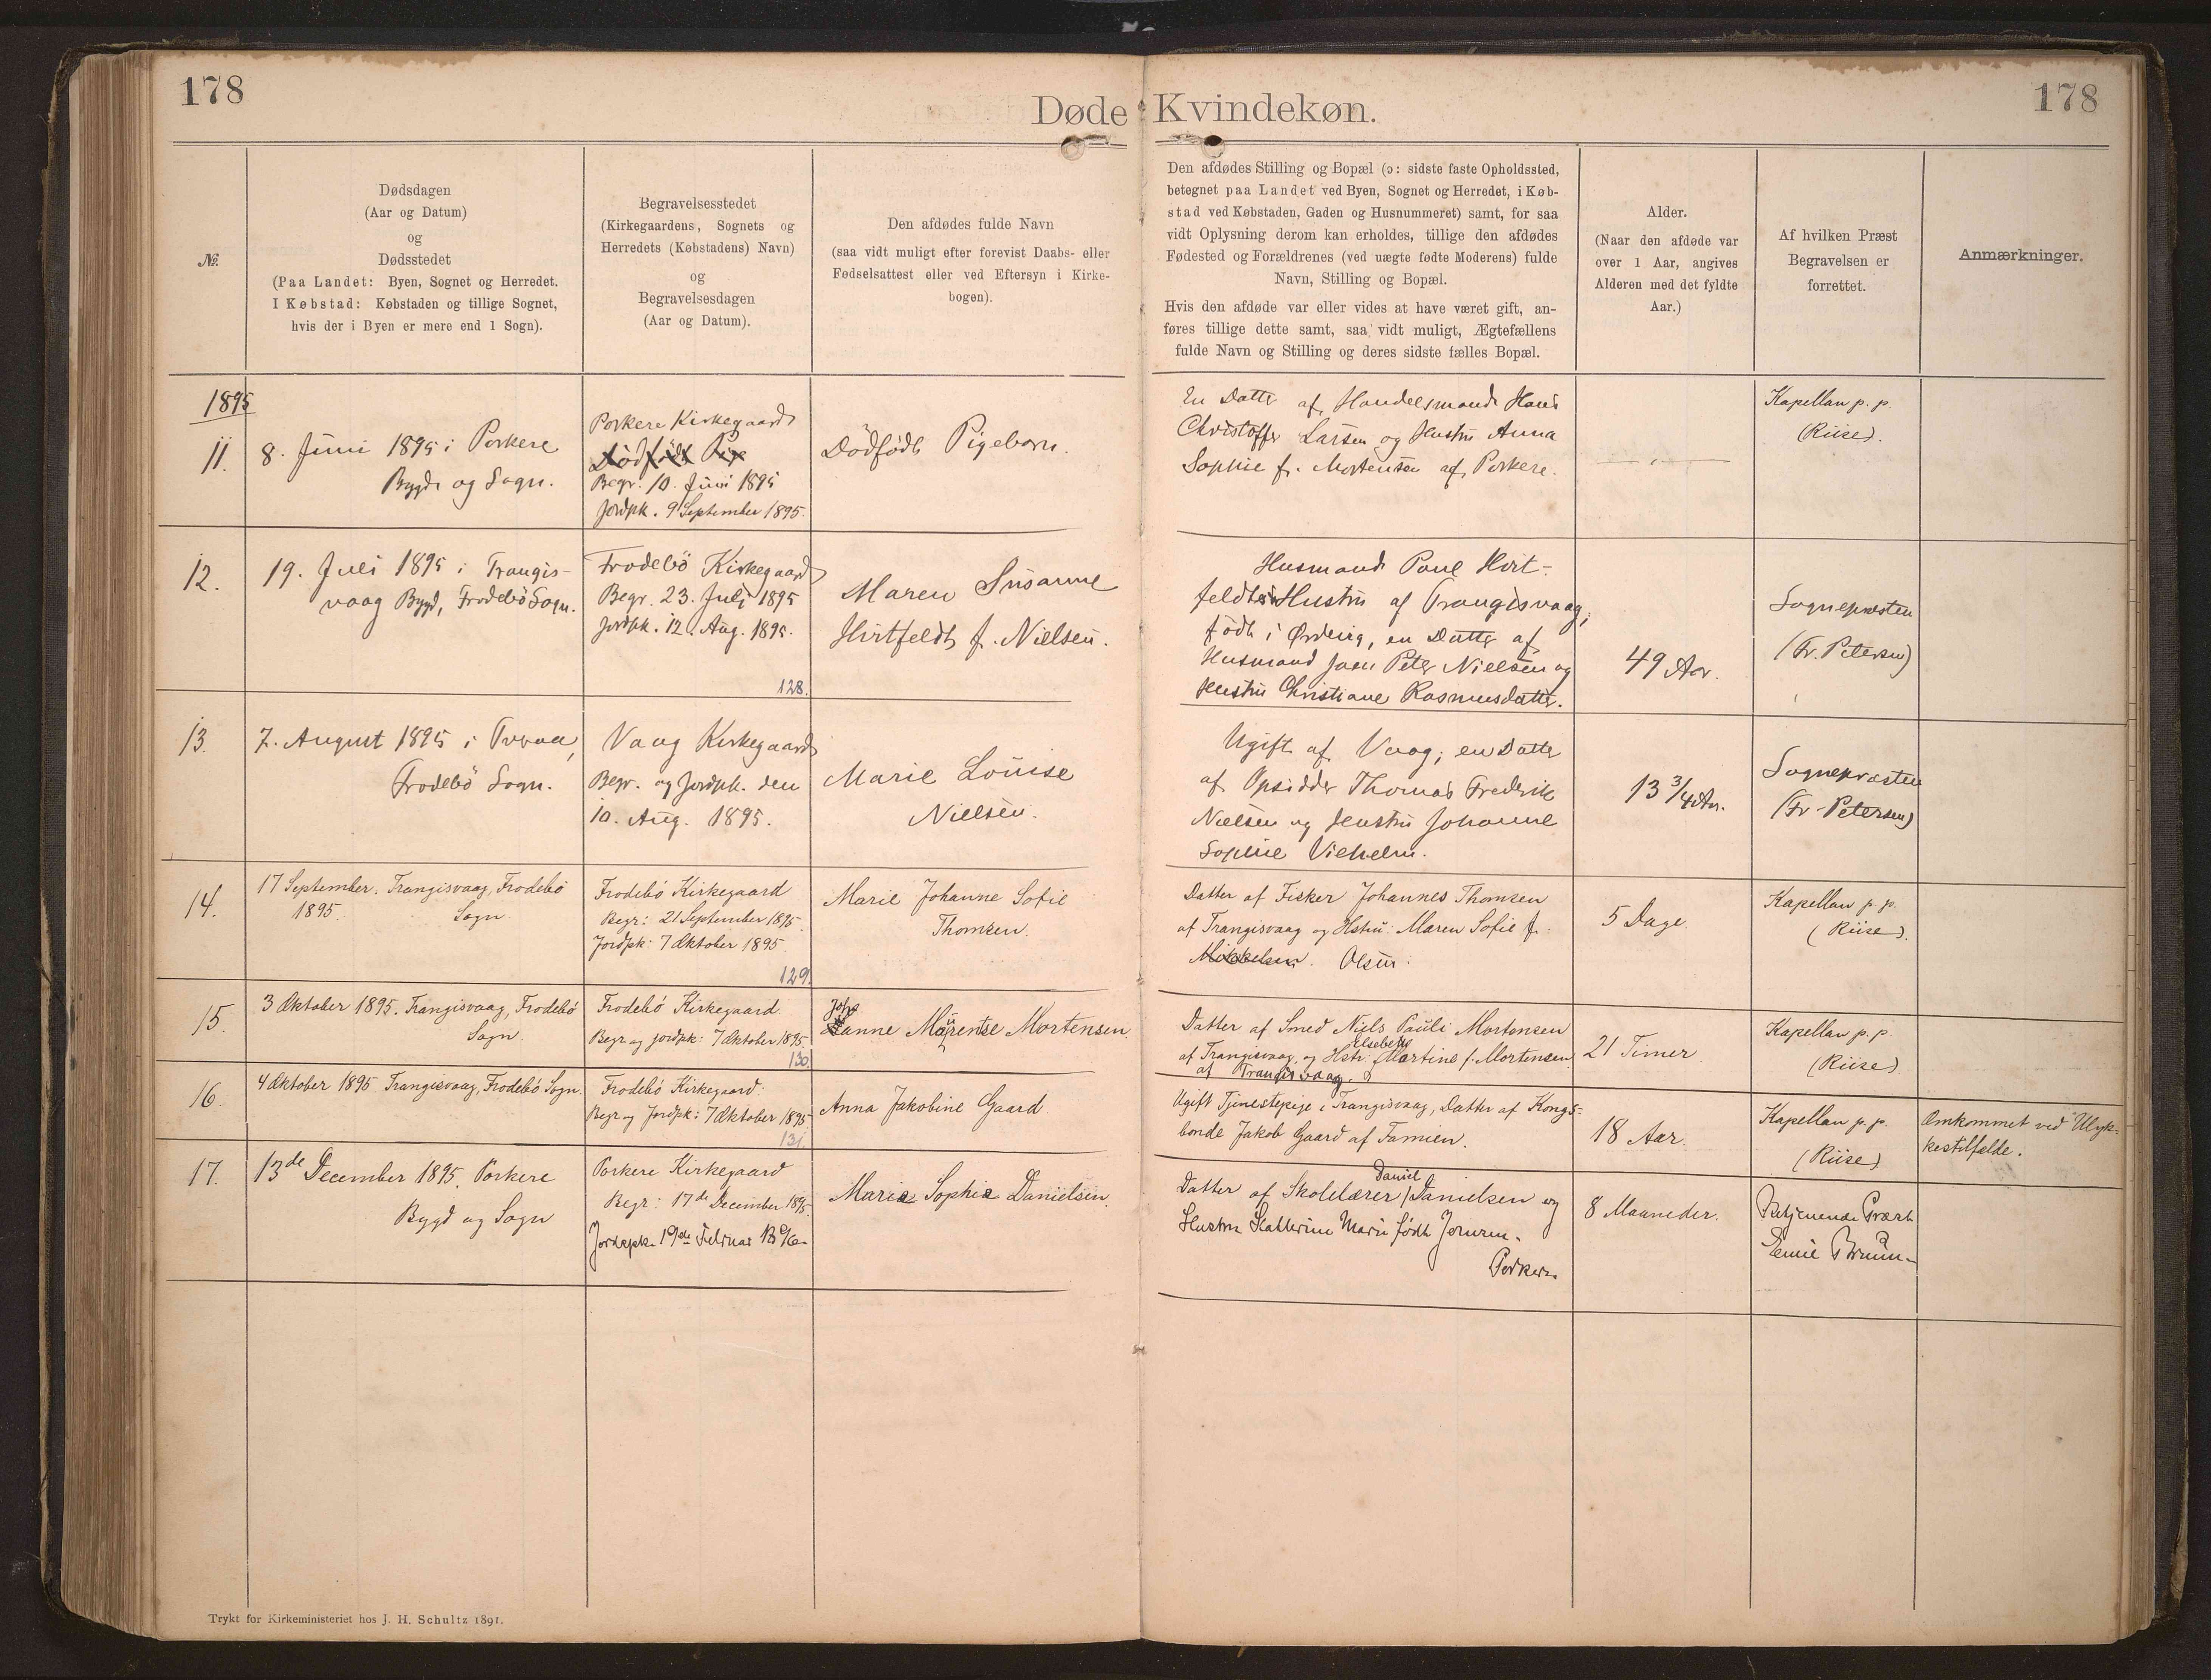 178
Døde Kvindekøn.
178
№.
Dødsdagen
(Aar og Datum)
og
Dødsstedet
(Paa Landet: Byen, Sognet og Herredet.
I Købstad: Købstaden og tillige Sognet,
hvis der i Byen er mere end 1 Sogn).
Begravelsesstedet
(Kirkegaardens, Sognets og
Herredets (Købstadens) Navn)
og
Begravelsesdagen
(Aar og Datum).
Den afdødes fulde Navn
(saa vidt muligt efter forevist Daabs- eller
Fødselsattest eller ved Eftersyn i Kirke-
bogen).
Den afdødes Stilling og Bopæl (ɔ: sidste faste Opholdssted,
betegnet paa Landet ved Byen, Sognet og Herredet, i Køb-
stad ved Købstaden, Gaden og Husnummeret) samt, for saa
vidt Oplysning derom kan erholdes, tillige den afdødes
Fødested og Forældrenes (ved uægte fødte Moderens) fulde
Navn, Stilling og Bopæl.
Hvis den afdøde var eller vides at have været gift, an-
føres tillige dette samt, saa vidt muligt, Ægtefællens
fulde Navn og Stilling og deres sidste fælles Bopæl.
Alder.
(Naar den afdøde var
over 1 Aar, angives
Alderen med det fyldte
Aar.)
Af hvilken Præst
Begravelsen er
forrettet.
Anmærkninger.
1895
11.
8. Juni 1895 i Porkere
Bygd og Sogn.
Porkere Kirkegaard
Dødfødt Pige
Begr. 10. Juni 1895
Jordpk. 9 September 1895.
Dödfödt Pigebarn.
En Datter af Handelsmand Hans
Christoffer Larsen og Hustru Anna
Sophie f. Mortensen af Porkere.
Kapellan p. p.
(Riise).
12.
19. Juli 1895 i Trangis-
vaag Bygd, Frodebö Sogn.
Frodebö Kirkegaard
Begr. 23. Juli 1895
Jordpk. 12. Aug. 1895.
128.
Maren Susanne
Hirtfeldt f. Nielsen.
Husmand Poul Hirt-
feldts Hustru af Trangisvaag;
født i Ørdevig, en Datter af
Husmand Joen Peter Nielsen og
Hustru Christiane Rasmusdatter.
49 Aar.
Sognepræsten
(Fr. Petersen)
13.
7. August 1895 i Tvraa,
Frodebö Sogn.
Vaag Kirkegaard
Begr. og Jordpk. den
10. Aug. 1895.
Marie Louise
Nielsen.
Ugift af Vaag; en Datter
af Opsidder Thomas Frederik
Nielsen og Hustru Johanne
Sophie Vilhelm.
13 3/4 Aar.
Sognepræsten
(Fr. Petersen)
14.
17 September. Trangisvaag, Frodebö
1895. Sogn
Frodebö Kirkegaard
Begr: 21 September 1895.
Jordpk: 7 Oktober 1895
129.
Marie Johanne Sofie
Thomsen.
Datter af Fisker Johannes Thomsen
af Trangisvaag og Hstru: Maren Sofie f.
Mikkelsen. Olsen.
5 Dage
Kapellan p. p.
(Riise).
15.
3 Oktober 1895. Trangisvaag, Frodebö
Sogn.
Frodebö Kirkegaard.
Begr. og jordpk: 7 Oktober 1895.
130.
Joha
anne Maurentse Mortensen.
Datter af Smed Niels Pauli Mortensen
Elsebeth
af Trangisvaag, og Hstr: Martine f. Mortensen
af Trangisvaag.
21 Timer.
Kapellan p. p.
(Riise)
16.
4 Oktober 1895 Trangisvaag, Frodebö Sogn.
Frodebö Kirkegaard:
Begr. og Jordpk: 7 Oktober 1895
131.
Anna Jakobine Gaard
Ugift Tjenestepige i Trangisvaag, Datter af Kongs-
bonde Jakob Gaard af Famien.
18 Aar.
Kapellan p. p.
(Riise)
Omkommet ved Ulyk-
kestilfælde.
17.
13de December 1895. Porkere
Bygd og Sogn
Porkere Kirkegaard
Begr: 17de December 1895.
Jordspk. 19de Februar 1896
Maria Sophia Danielsen.
Daniel
Datter af Skolelærer Danielsen og
Hustru Katherine Marie født Joensen.
Porkere
8 Maaneder.
Betjenende Præst
Emil Bruun
Trykt for Kirkeministeriet hos J. H. Schultz 1891.